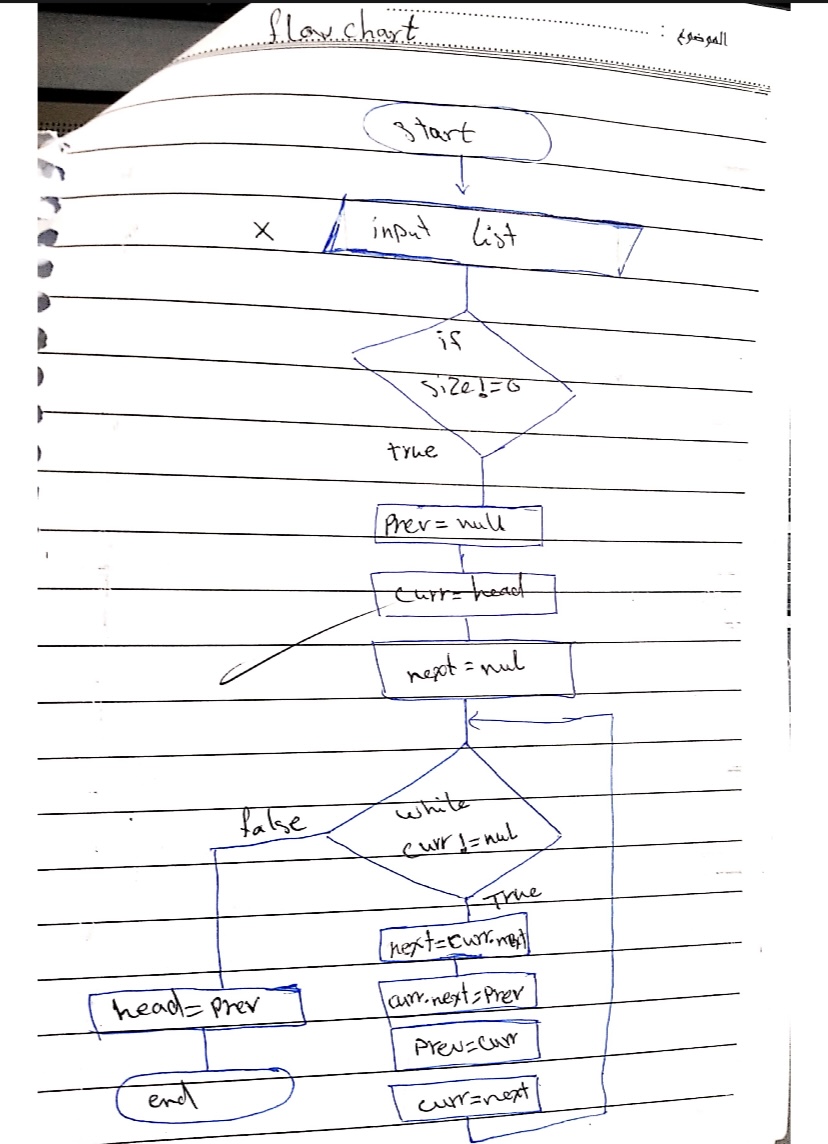 flow chart
الموضوع :
start
x
input list
if
size!=0
true
Prev = null
curr = head
next = nul
while
curr != nul
false
True
next=curr.next
curr.next=Prev
Prev=curr
curr=next
head=prev
end